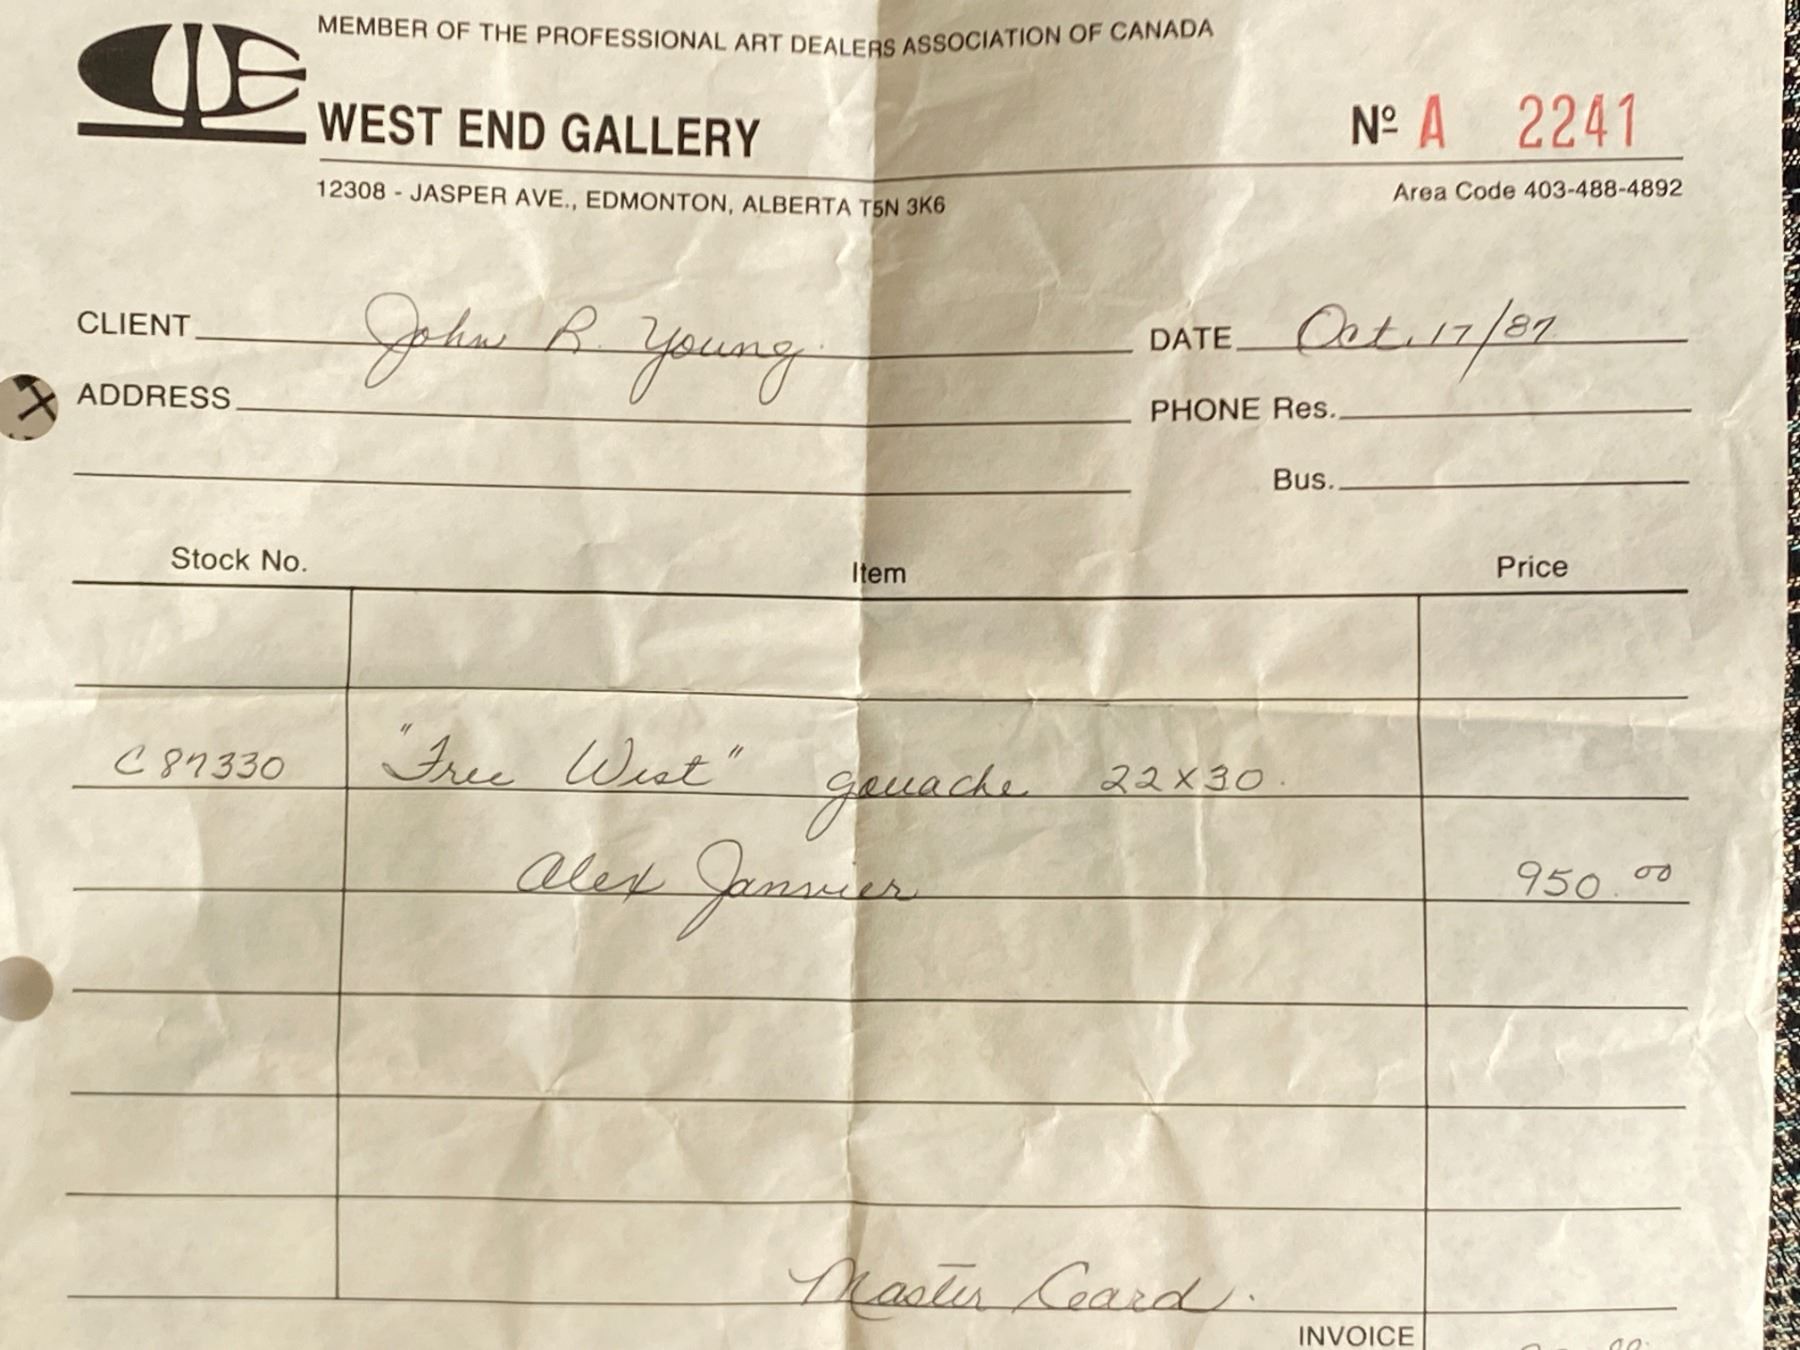 MEMBER OF THE PROFESSIONAL ART DEALERS ASSOCIATION OF CANADA
WE
WEST END GALLERY
Nº A 2241
12308 - JASPER AVE., EDMONTON, ALBERTA T5N 3K6
Area Code 403-488-4892
CLIENT John R. Young DATE Oct. 17/87
ADDRESS PHONE Res.
Bus.
Stock No. Item Price
C87330 "Free West" gouache 22x30.
Alex Janvier 950.00
Master Ceard.
INVOICE